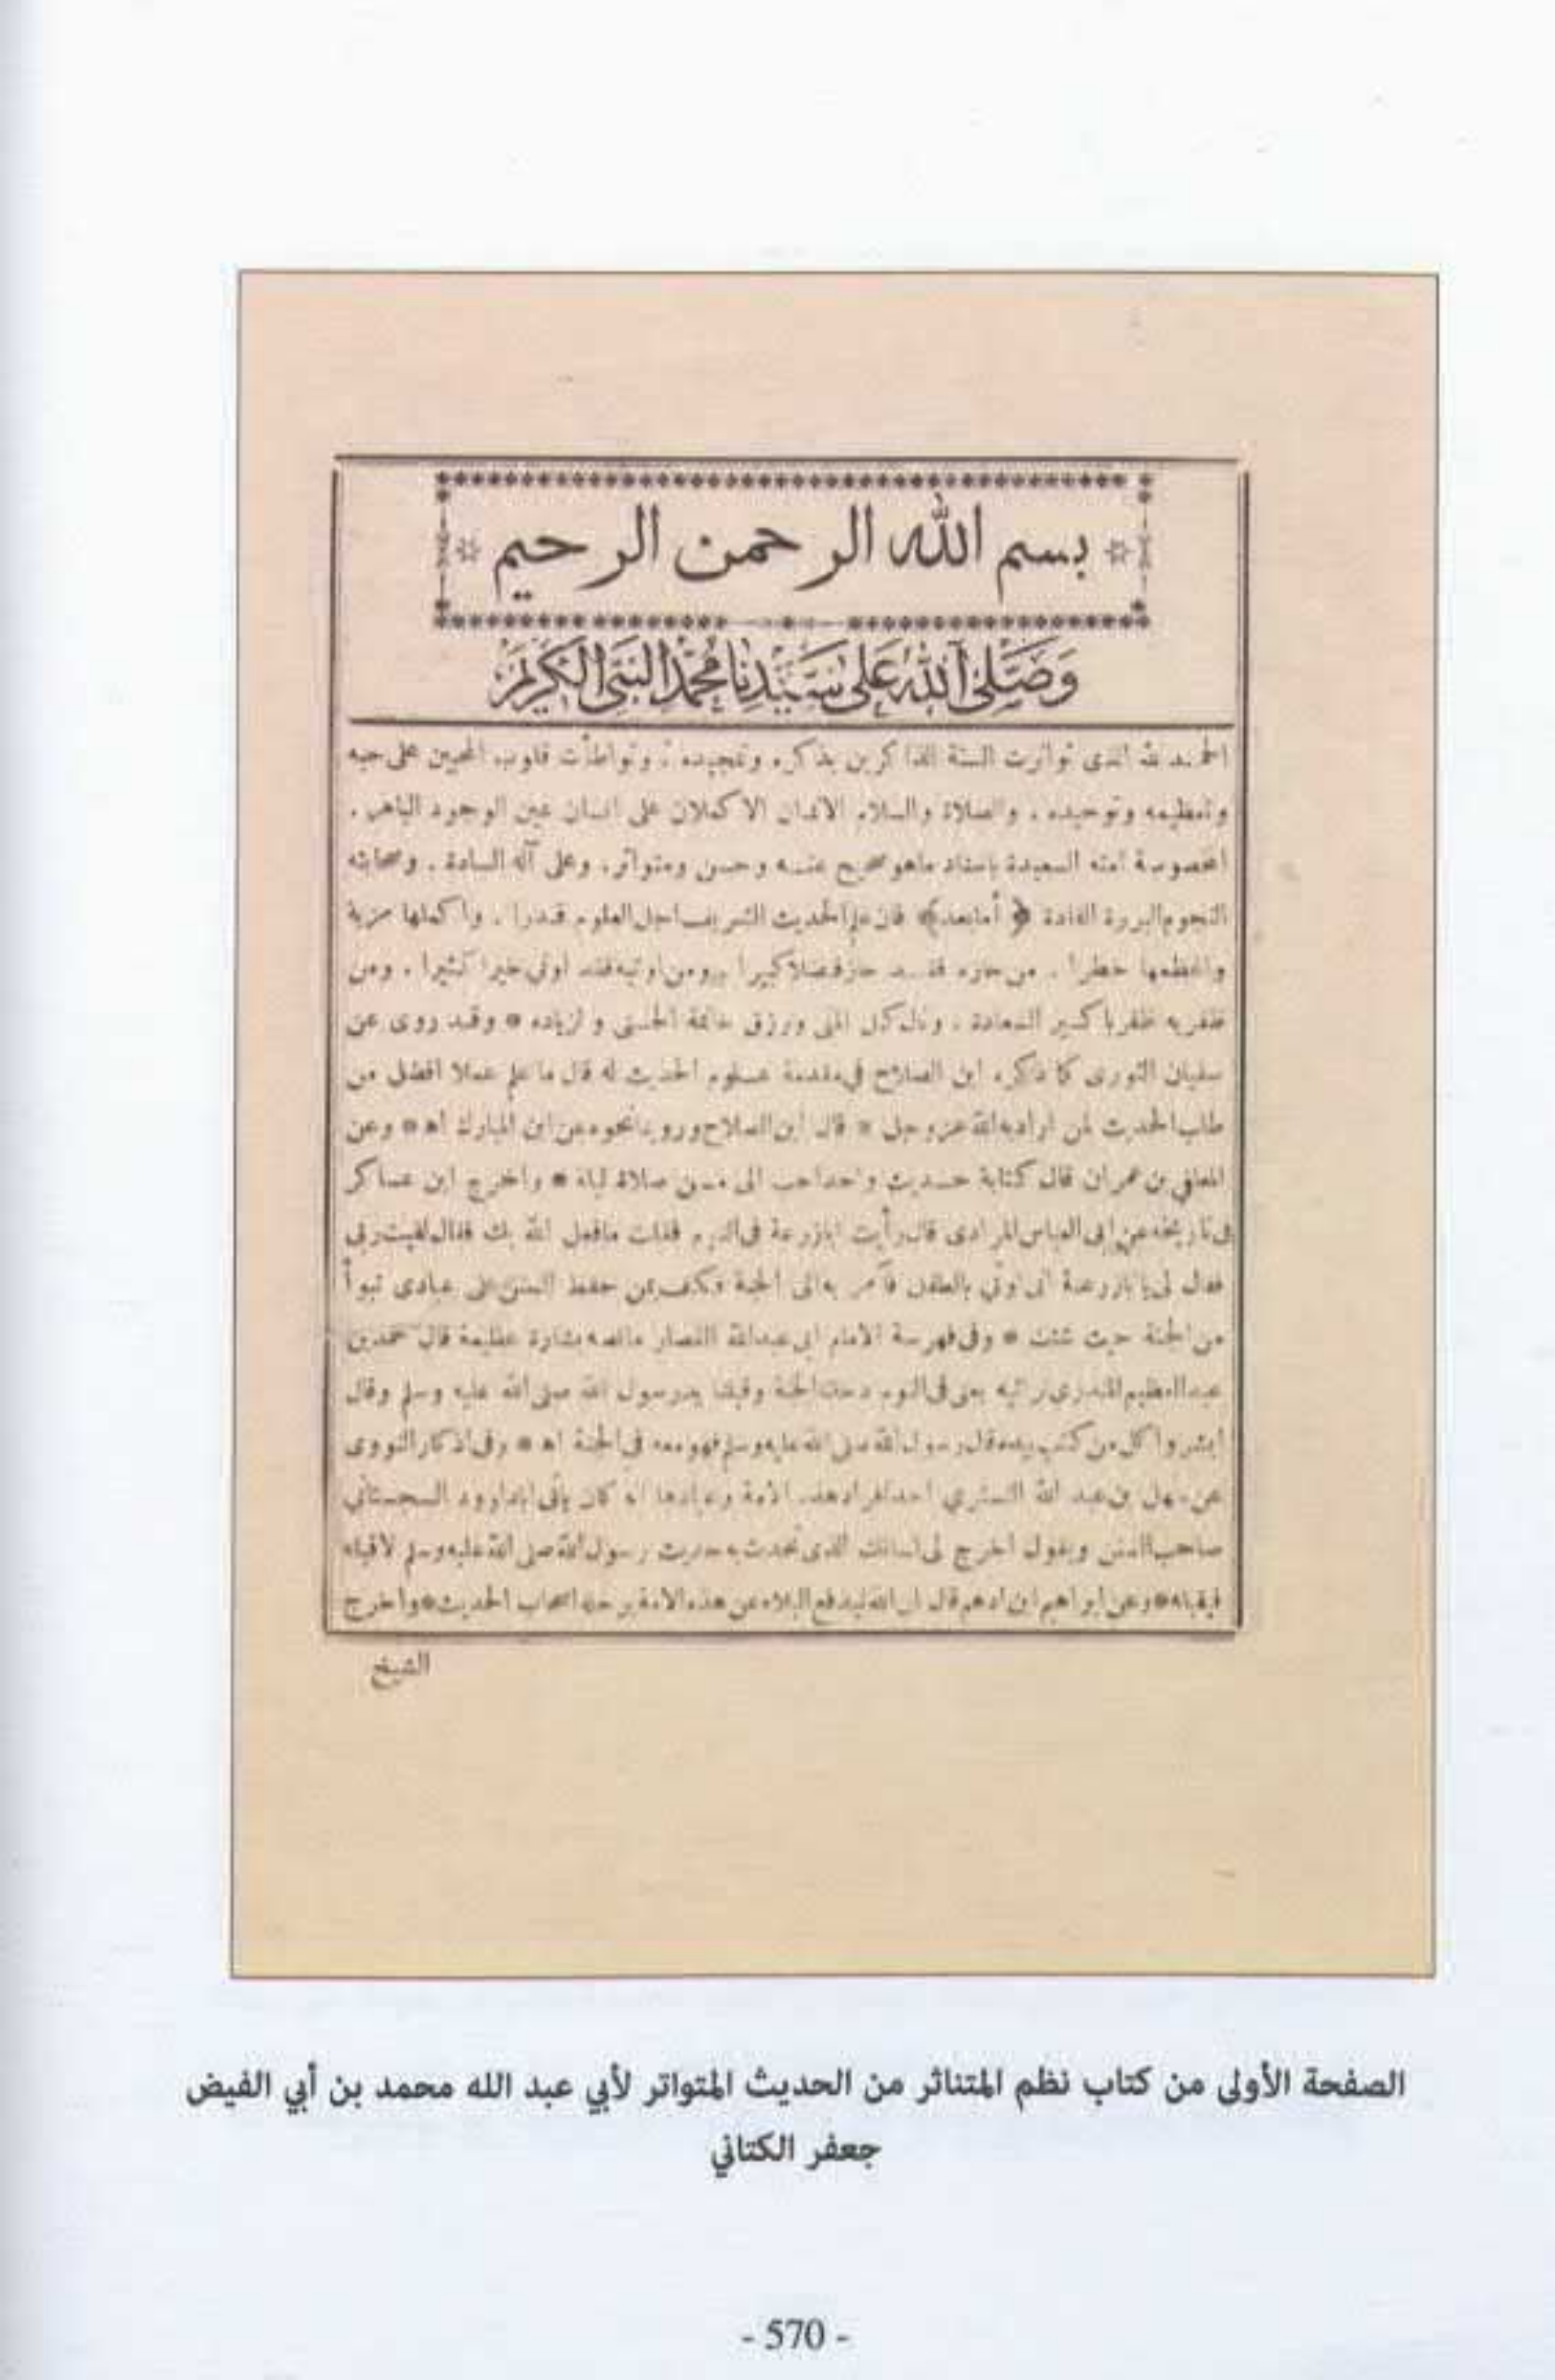 بسم الله الرحمن الرحيم
وَصَلَّى اللهُ عَلَى سَيِّدِنَا مُحَمَّدٍ النَّبِيِّ الكَرِيمِ
الحمد لله الذى تواترت السنة الذاكرين بذكره وتمجيده . وتواطأت قلوب المحبين على حبه
وتعظيمه وتوحيده . والصلاة والسلام الاتمان الاكملان على انسان عين الوجود الباهر .
المخصوصة امته السعيدة باسناد ماهو صحيح عنه وحسن ومتواتر . وعلى آله السادة . وصحابته
النجوم البررة القادة ﴿ أما بعد ﴾ فان علم الحديث الشريف اجل العلوم قدرا . واكملها مزية
واعظمها خطرا . من حازه فقد حاز فضلا كبيرا ومن اوتيه فقد اوتى خيرا كثيرا . ومن
ظفر به ظفر باكسير السعادة . ونال كل المنى ورزق خاتمة الحسنى وزياده * وقد روى عن
سفيان الثورى كما ذكره ابن الصلاح فى مقدمة علوم الحديث له قال ما علم عملا افضل من
طلب الحديث لمن اراد به الله عز وجل * قال ابن الصلاح وروينا نحوه عن ابن المبارك اه * وعن
المعافي بن عمران قال كتابة حديث واحد احب الى من صلاة ليلة * واخرج ابن عساكر
فى تاريخه عن ابى العباس المرادى قال رأيت ابا زرعة فى النوم فقلت مافعل الله بك فقال لقيت ربى
فقال لى يا ابا زرعة انى اوتي بالطفل فآمر به الى الجنة فكيف بمن حفظ السنن على عبادى تبوأ
من الجنة حيث شئت * وفى فهرسة الامام ابى عبد الله القصار ما نصه بشارة عظيمة قال محمد بن
عبد العظيم المنذرى رأيته يعنى فى النوم دخلنا الجنة وقبلنا يد رسول الله صلى الله عليه وسلم وقال
ابشروا كل من كتب بيده قال رسول الله صلى الله عليه وسلم فهو معه فى الجنة اه * وفى اذكار النووى
عن سهل بن عبد الله التستري احد افراد هذه الامة وعبادها انه كان يأتى ابا داوود السجستاني
صاحب السنن ويقول اخرج لى لسانك الذى تحدث به حديث رسول الله صلى الله عليه وسلم لاقبله
فيقبله * وعن ابراهيم ابن ادهم قال ان الله ليدفع البلاء عن هذه الامة برحلة اصحاب الحديث * واخرج
الشيخ
الصفحة الأولى من كتاب نظم المتناثر من الحديث المتواتر لأبي عبد الله محمد بن أبي الفيض
جعفر الكتاني
- 570 -